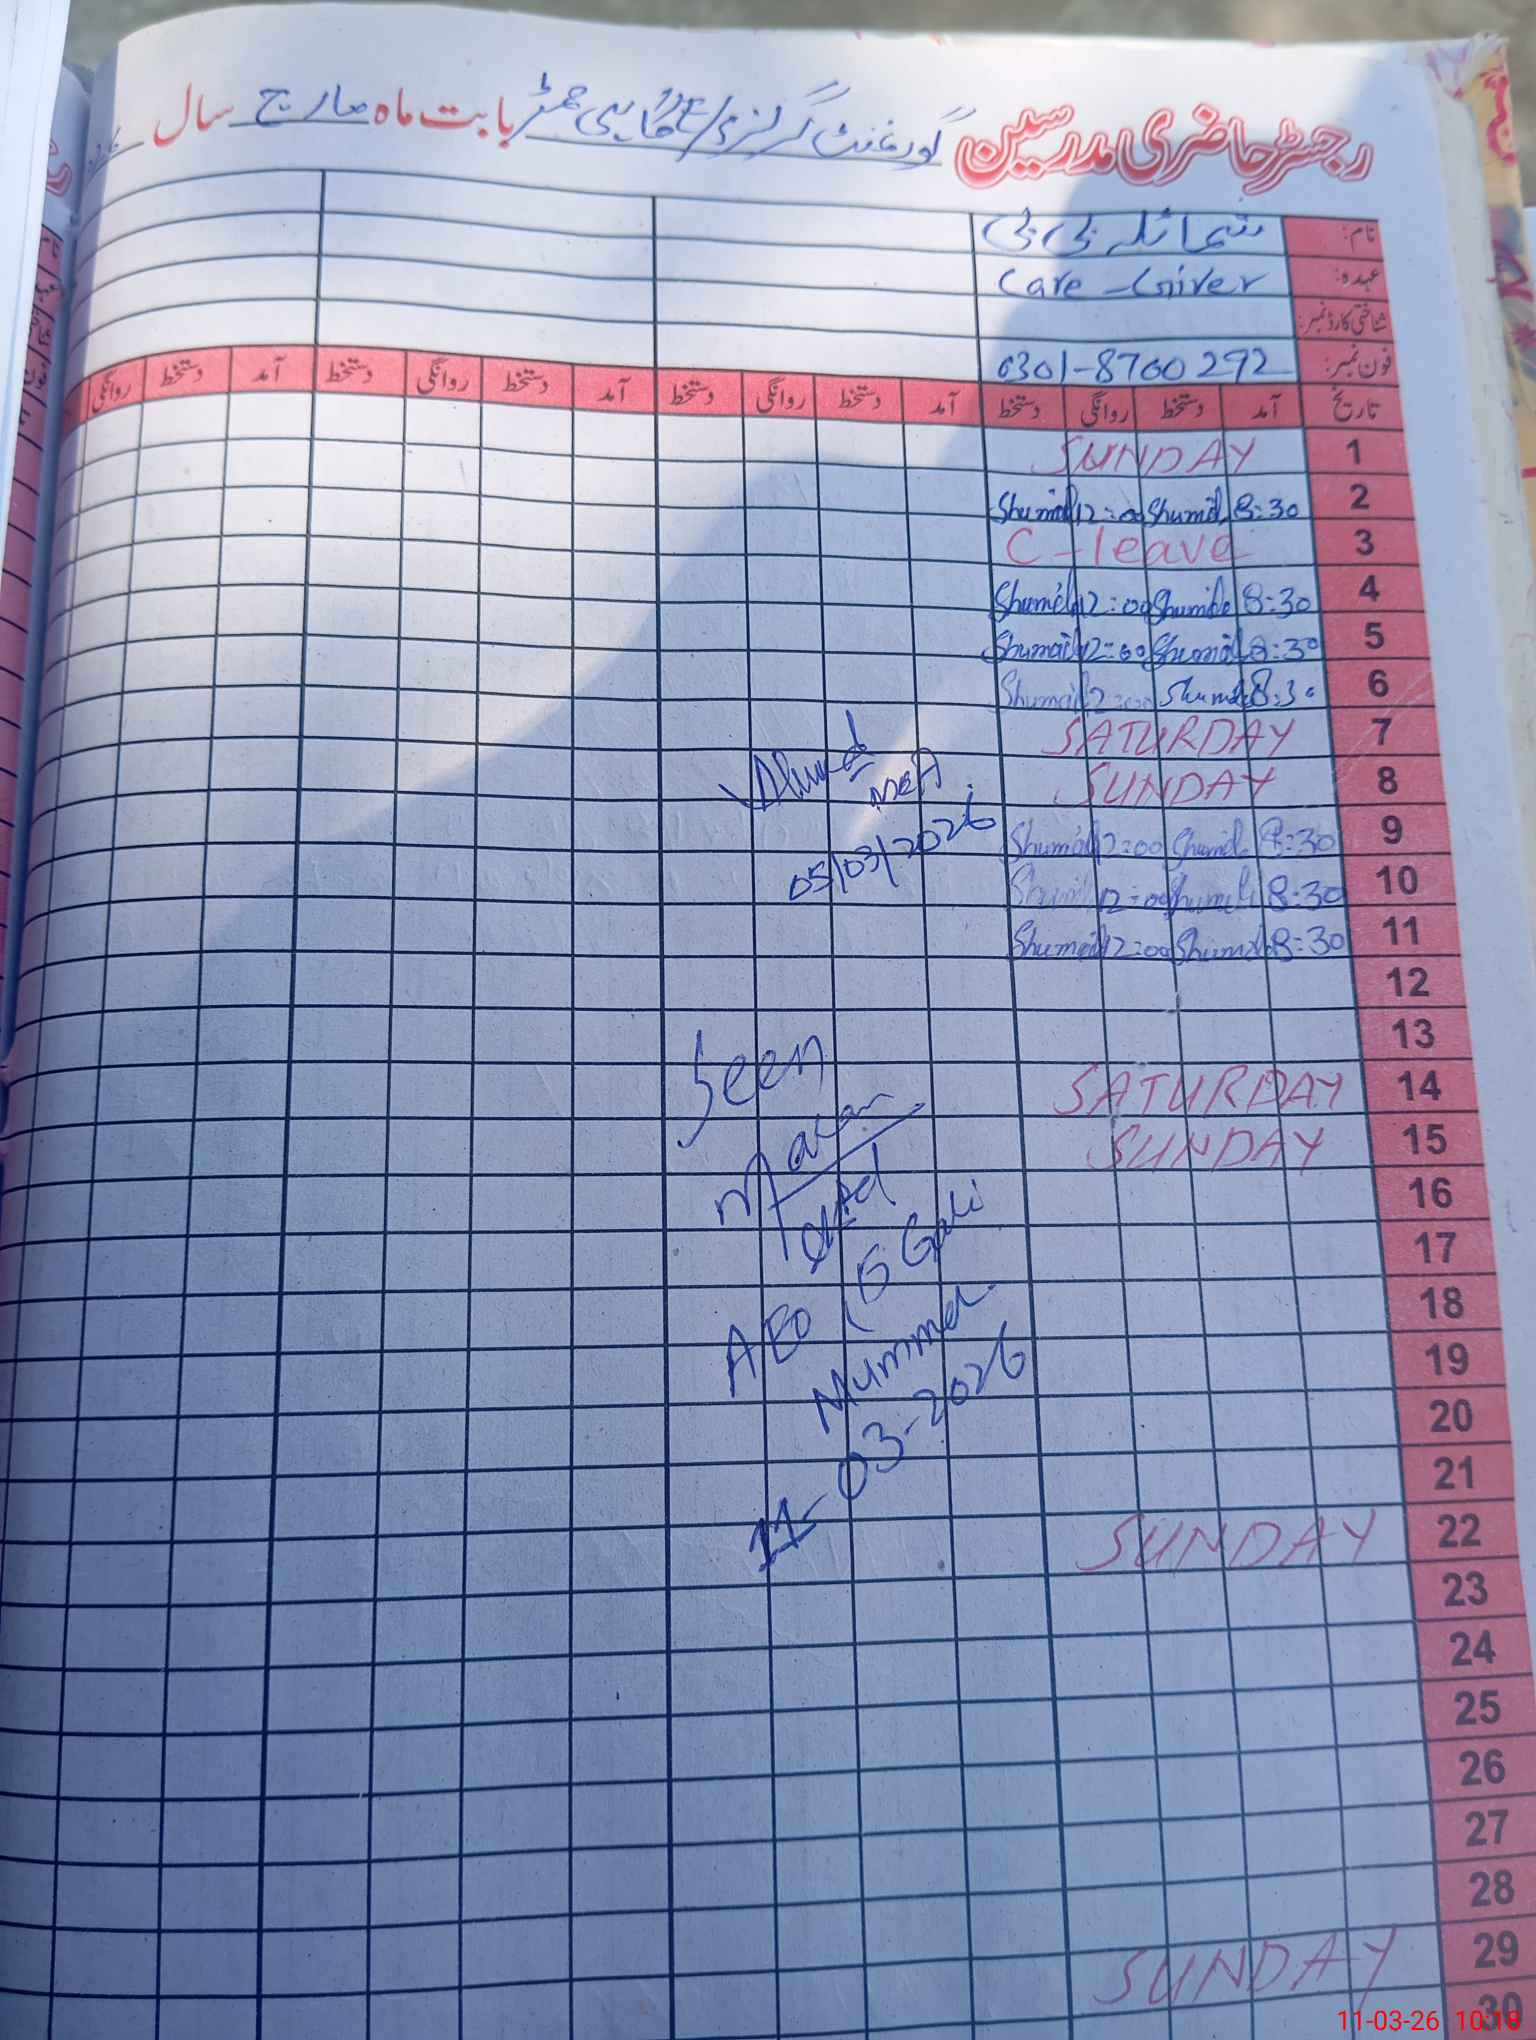 رجسٹر حاضری مدرسین گورنمنٹ گرلز بابت ماہ مارچ سال
نام: شمائلہ بی بی
عہدہ: Care-Giver
شناختی کارڈ نمبر:
فون نمبر: 0301-8700292
تاریخ آمد دستخط روانگی دستخط آمد دستخط روانگی دستخط آمد دستخط روانگی دستخط آمد دستخط روانگی
1 SUNDAY
2 8:30 Shumail 12:00 Shumail
3 C-leave
4 8:30 Shumaila 12:00 Shumaila
5 8:30 Shumaila 12:00 Shumail
6 8:30 Shumaila 12:00 Shumail
7 SATURDAY
8 SUNDAY
9 8:30 Shumaila 12:00 Shumail
10 8:30 Shumaila 12:00 Shumail
11 8:30 Shumaila 12:00 Shumail
12
13
14 SATURDAY
15 SUNDAY
16
17
18
19
20
21
22 SUNDAY
23
24
25
26
27
28
29 SUNDAY
30
Ahmed
MEA
05/03/2026
Seen
AEO (G Gali
Mummer
11-03-2026
11-03-26 10:18